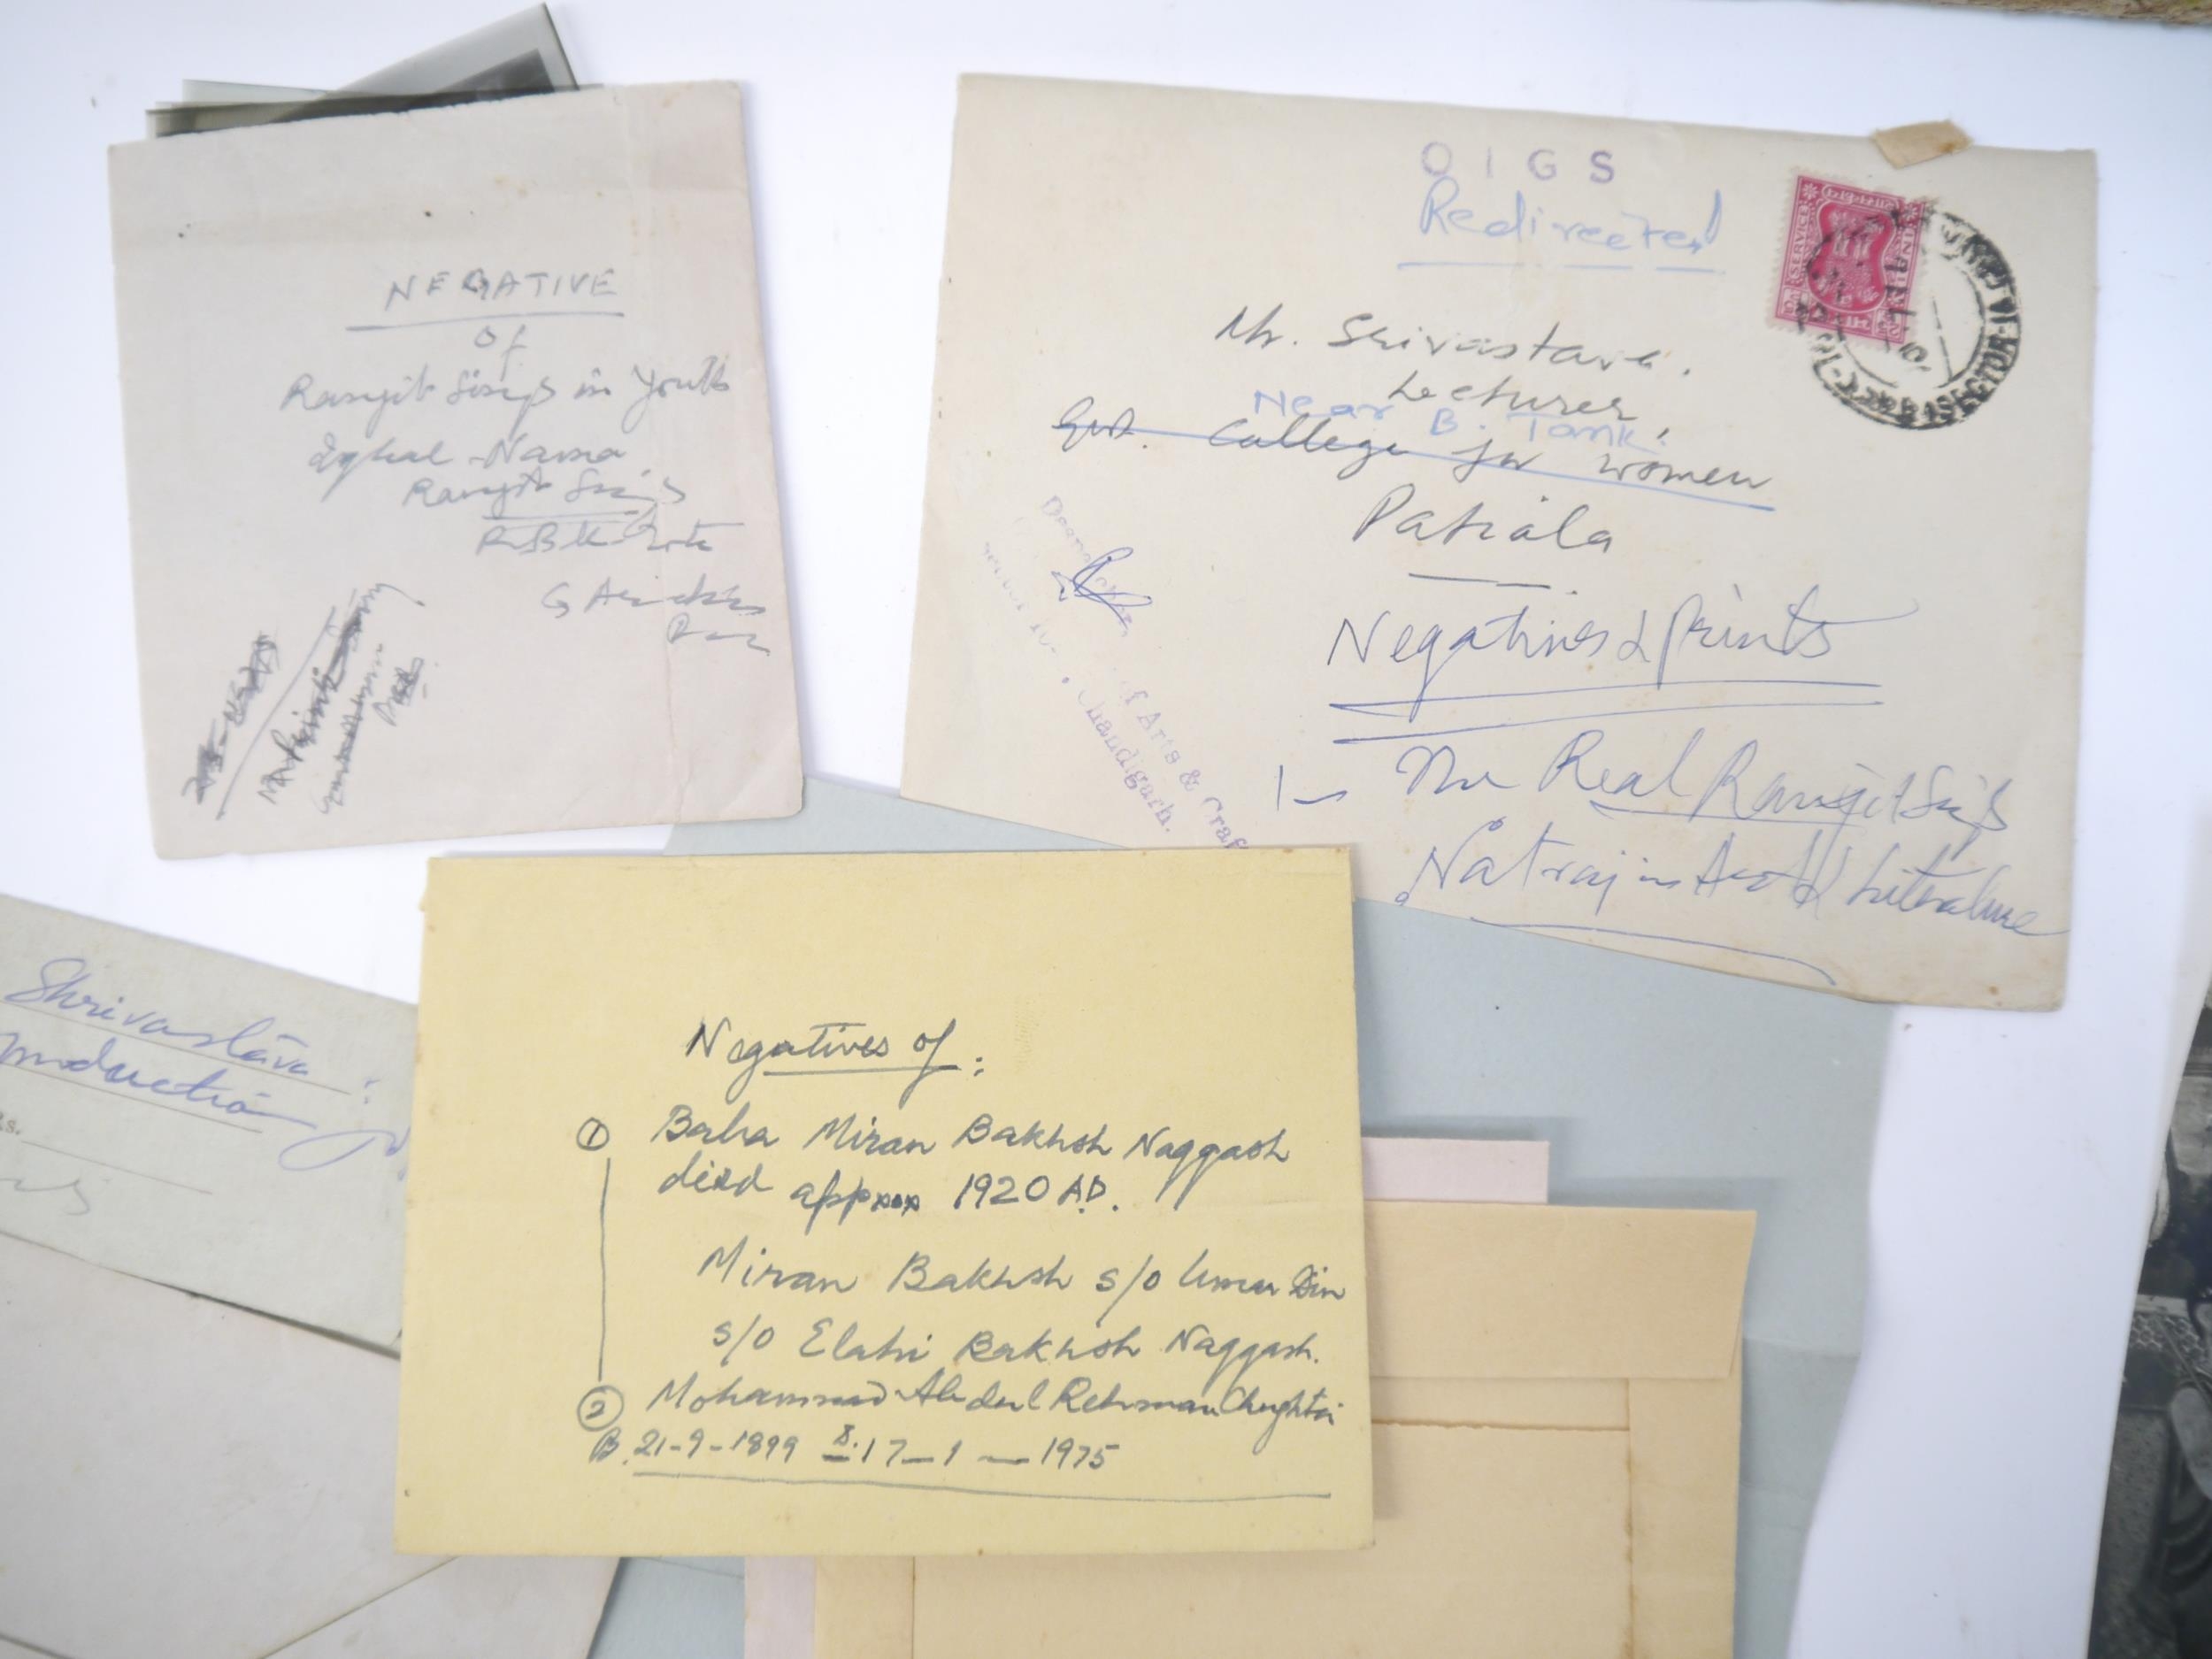 NEGATIVE
of
Ranjit Singh in Youth
Iqbal-Nama
Ranjit Singh
OIGS
Redirected
Mr. Srivastava.
Lecturer
Near B. Tank.
Govt. College for women
Patiala
Negatives & prints
of Arts & Craf
Chandigarh.
1- The Real Ranjit Singh
Natraj in Art & Literature
SERVICE
Shrivastava:
Negatives of:
① Baba Miran Bakhsh Naqqash
died approx 1920 A.D.
Miran Bakhsh s/o Umar Din
s/o Elahi Bakhsh Naqqash.
② Mohammad Abdul Rehman Chughtai
B. 21-9-1899 D. 17-1-1975